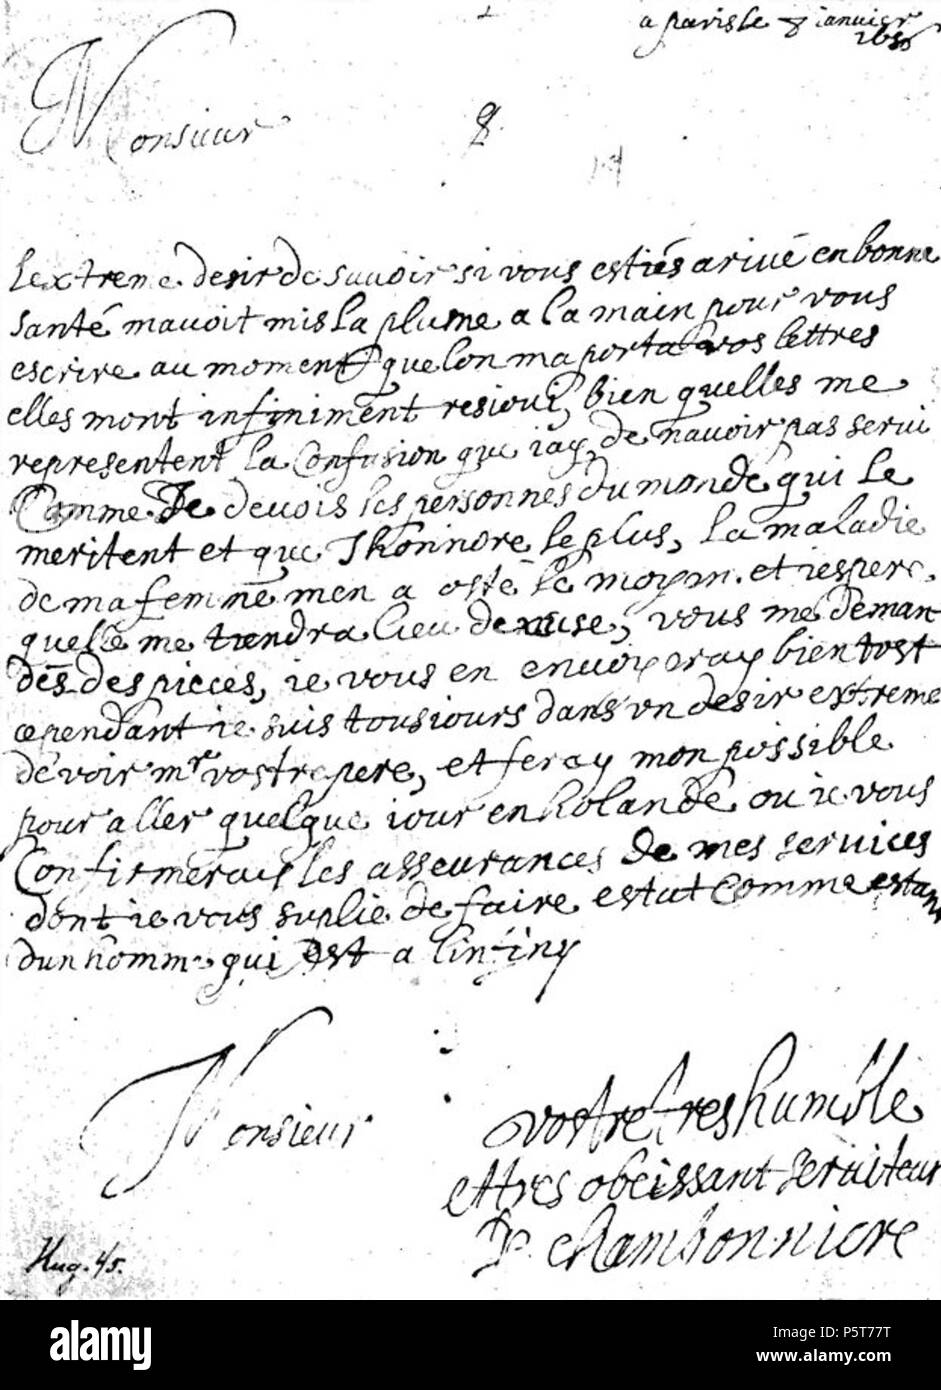 a paris le 8 ianuier
1656
Monsieur
8
lextreme desir de sauoir si vous estiés arivé en bonne
santé mauoit mis la plume a la main pour vous
escrire au moment que lon ma porta vos lettres
elles mont infiniment resioui, bien quelles me
representent la Confusion que iay de nauoir pas serui
Comme Je deuois les personnes du monde qui le
meritent et que Jhonnore le plus, la maladie
de ma femme men a osté le moyin et iespere
quelle me tiendra lieu dexcuse, vous me deman
dés des pieces, ie vous en enuoiyray bien tost
cependant ie suis tousiours dans vn desir extreme
de voir mr vostre pere, et feray mon possible
pour aller quelque iour en holande ou ie vous
Confirmerais les asseurances de mes seruices
dont ie vous suplie de faire estat Comme estant
dun homme qui est a linfiny
Monsieur
vostre tres humble
et tres obeissant seruiteur
chambonniere
Hug. 45.
alamy
Image ID: P5T77T
www.alamy.com